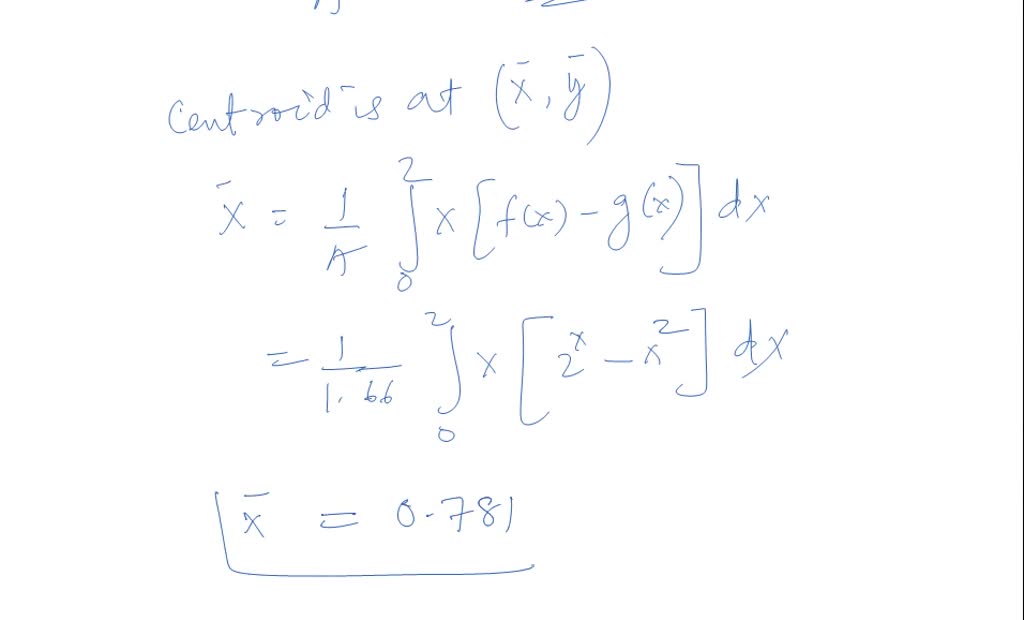 Centroid is at (x̄, ȳ)
x̄ = 1/A ∫₀² x [f(x) - g(x)] dx
= 1/1.66 ∫₀² x [2ˣ - x²] dx
x̄ = 0.781